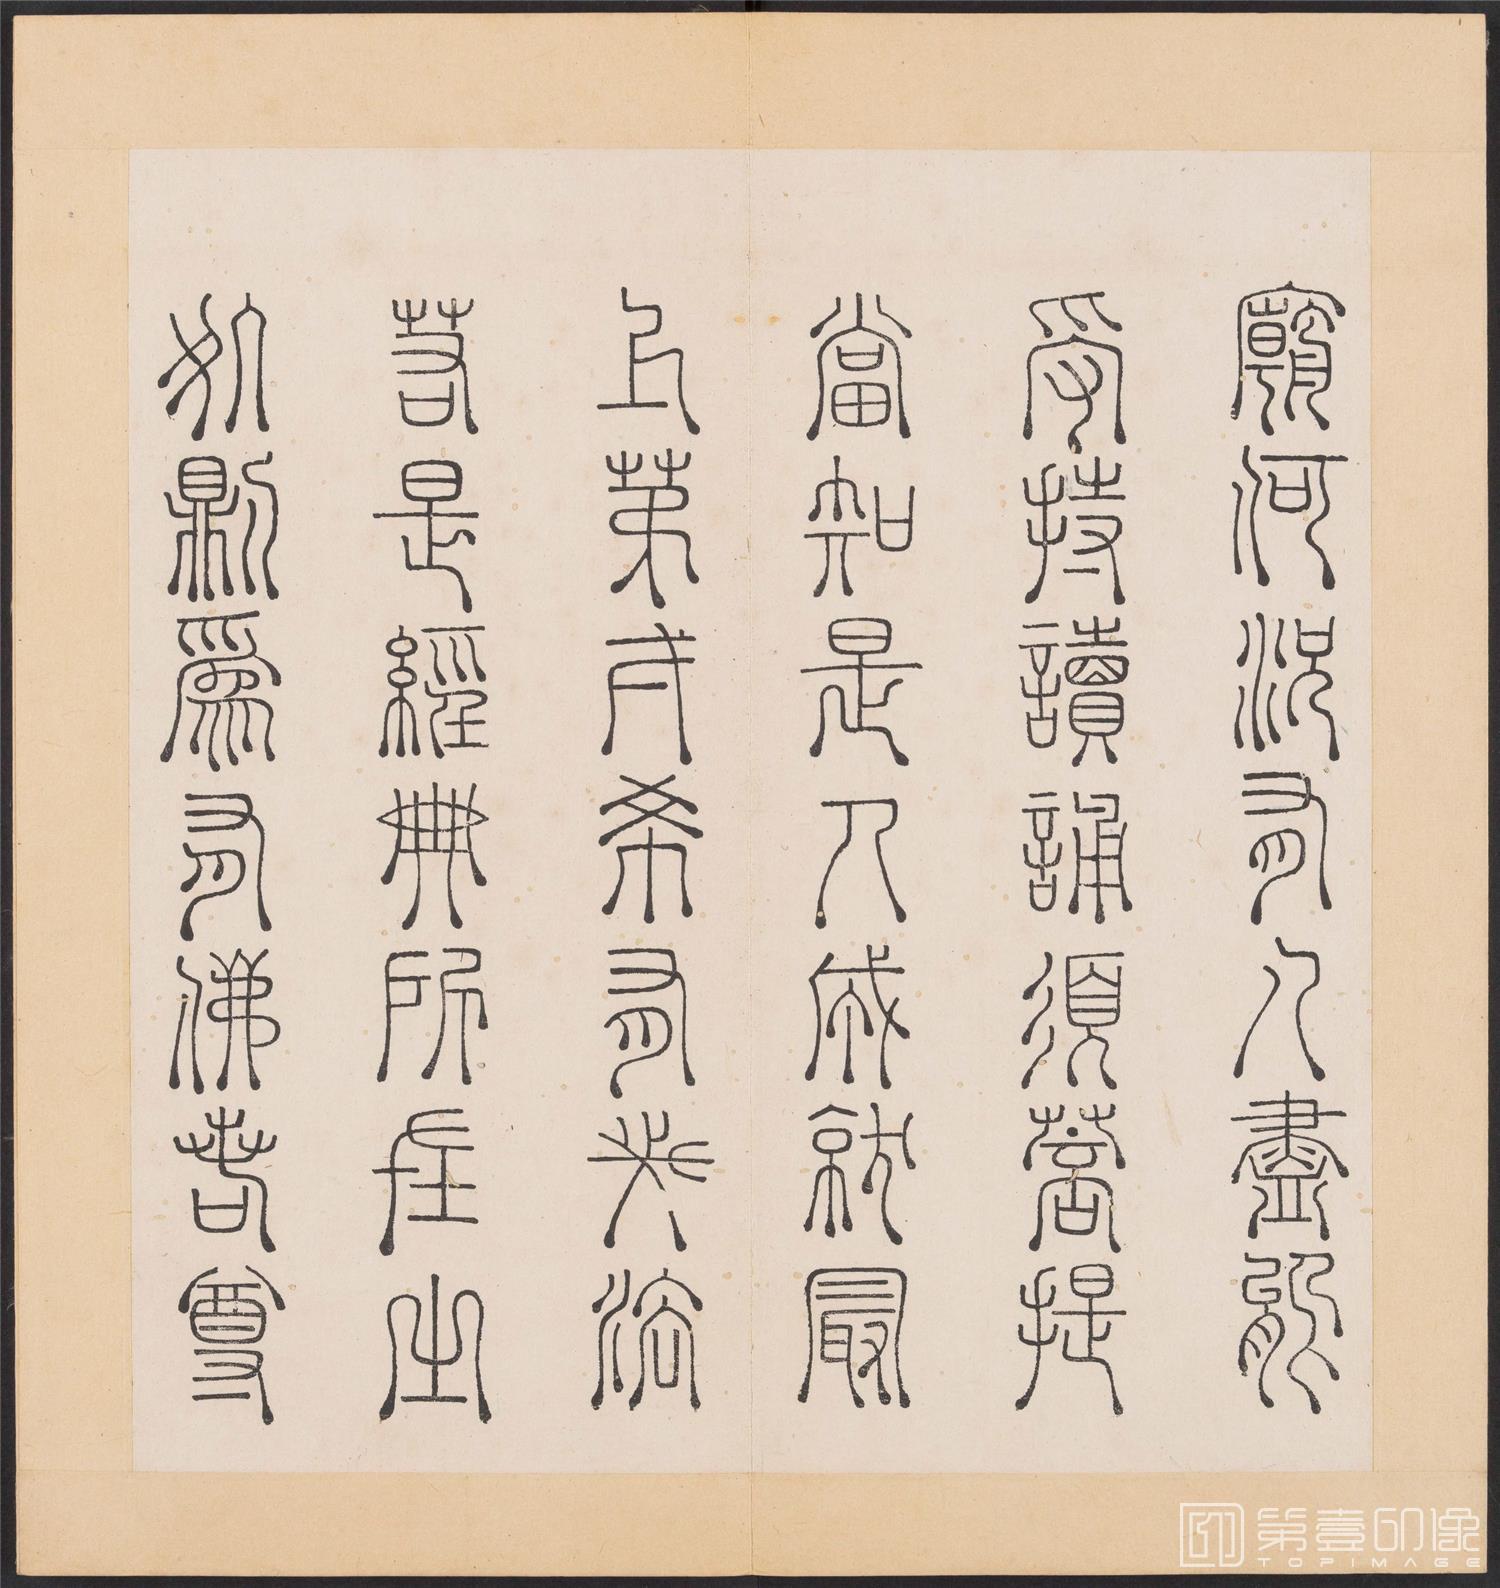 廟何況有人盡能
受持讀誦須菩提
當知是人成就最
上第一希有之法
若是經典所在之
處則為有佛若尊
第壹印像
TOPIMAGE